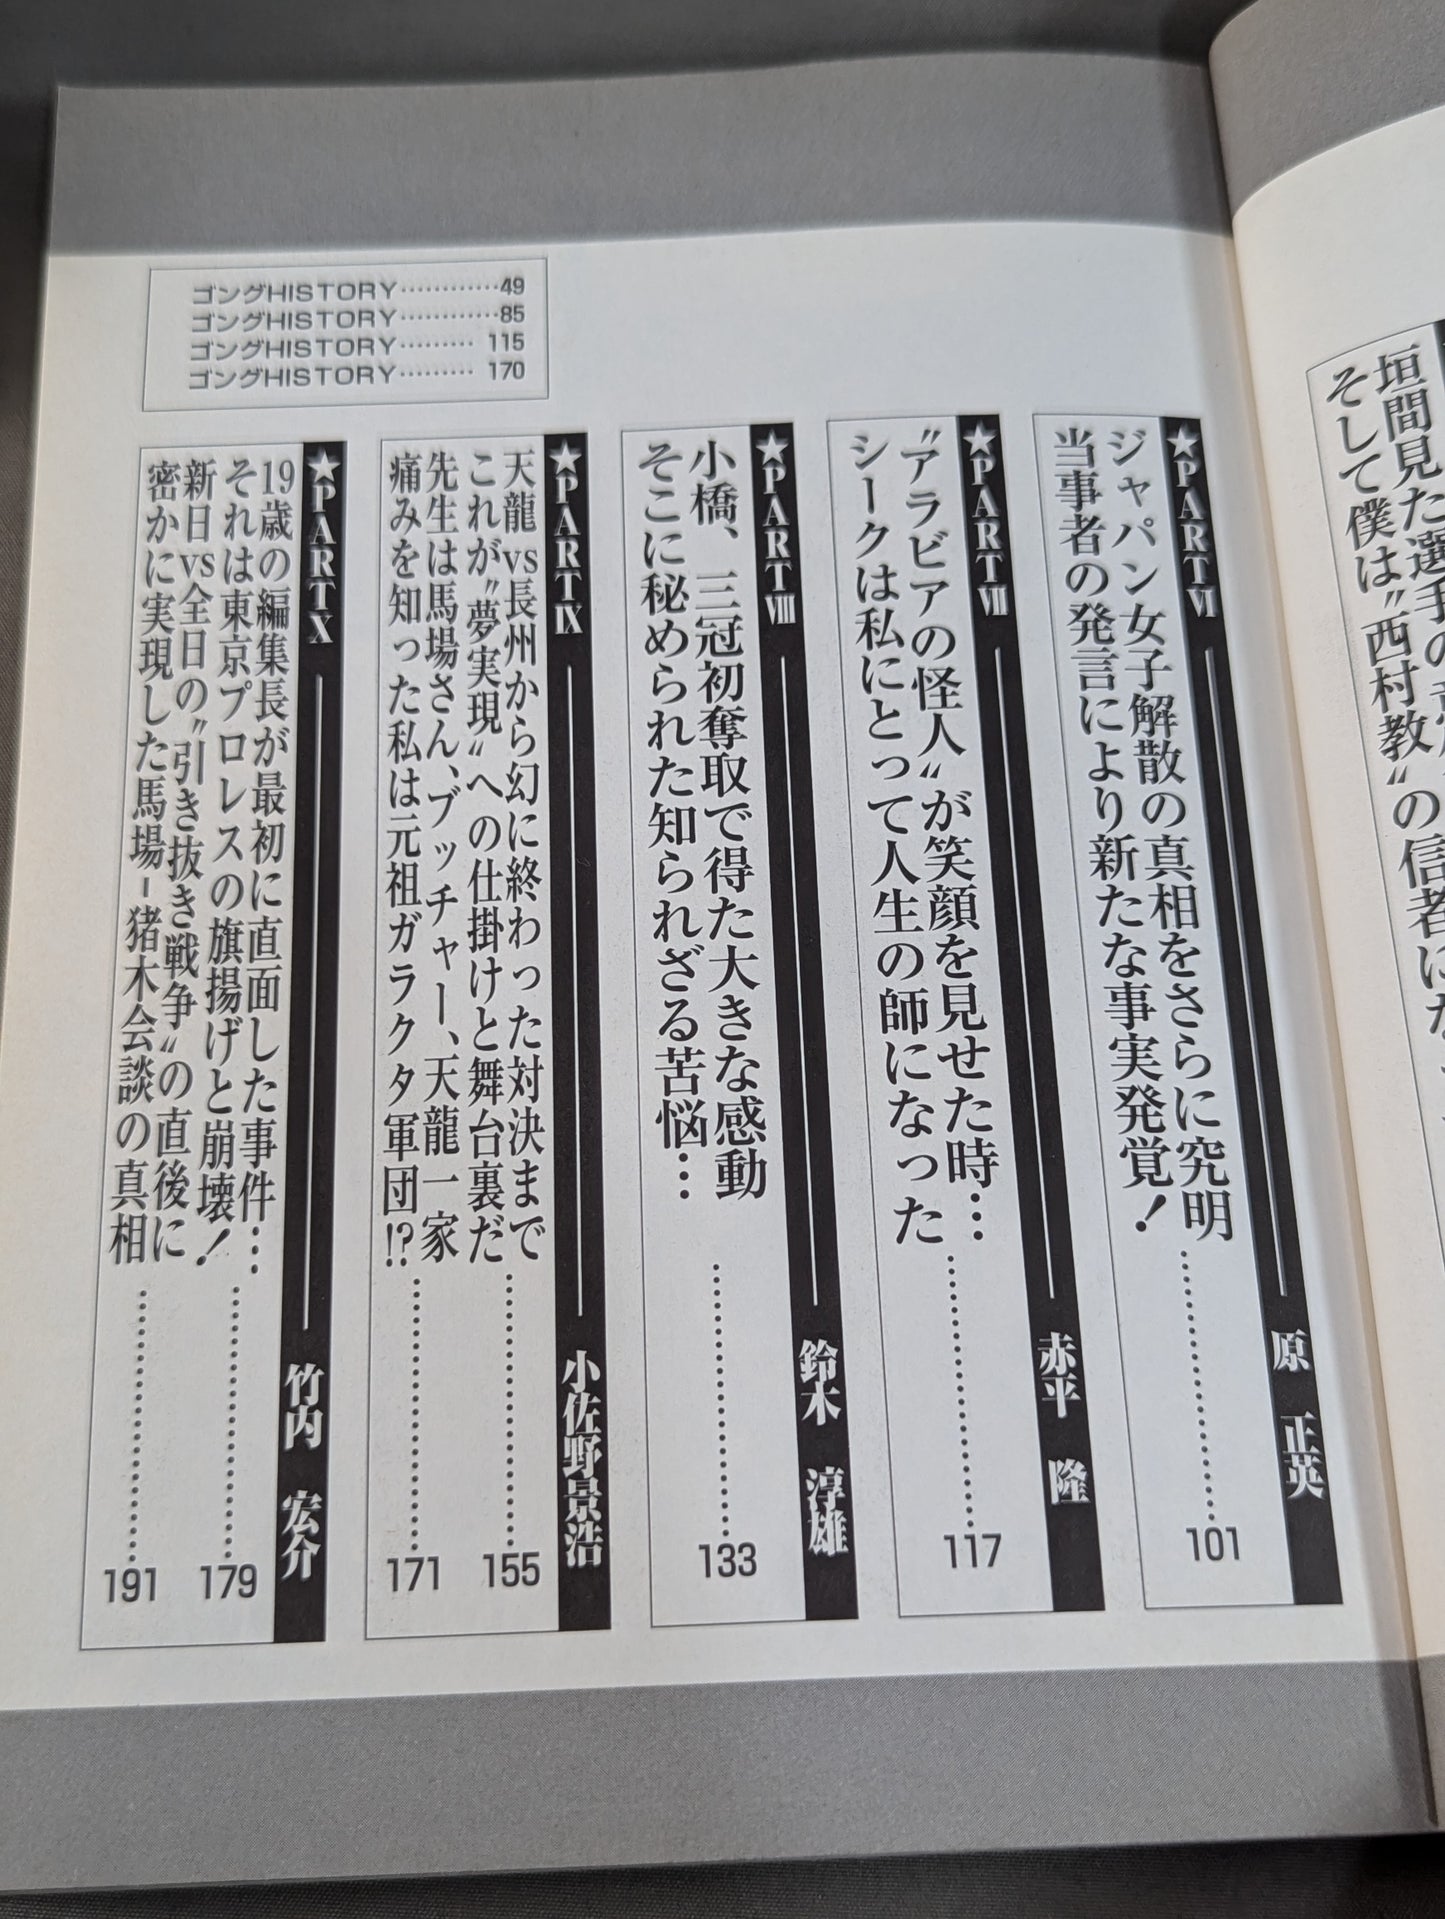 垣間見た選手の
そして僕は〝西村教〟の信者に
★PART Ⅵ 原 正英
ジャパン女子解散の真相をさらに究明
当事者の発言により新たな事実発覚！
101
★PART Ⅶ 赤平 隆
〝アラビアの怪人〟が笑顔を見せた時…
シークは私にとって人生の師になった
117
★PART Ⅷ 鈴木 淳雄
小橋、三冠初奪取で得た大きな感動
そこに秘められた知られざる苦悩…
133
★PART Ⅸ 小佐野景浩
天龍vs長州から幻に終わった対決まで
これが〝夢実現〟への仕掛けと舞台裏だ
155
先生は馬場さん、ブッチャー、天龍一家
痛みを知った私は元祖ガラクタ軍団!?
171
★PART Ⅹ 竹内 宏介
19歳の編集長が最初に直面した事件…
それは東京プロレスの旗揚げと崩壊！
179
新日vs全日の〝引き抜き戦争〟の直後に
密かに実現した馬場-猪木会談の真相
191
ゴングHISTORY…………49
ゴングHISTORY…………85
ゴングHISTORY……… 115
ゴングHISTORY……… 170